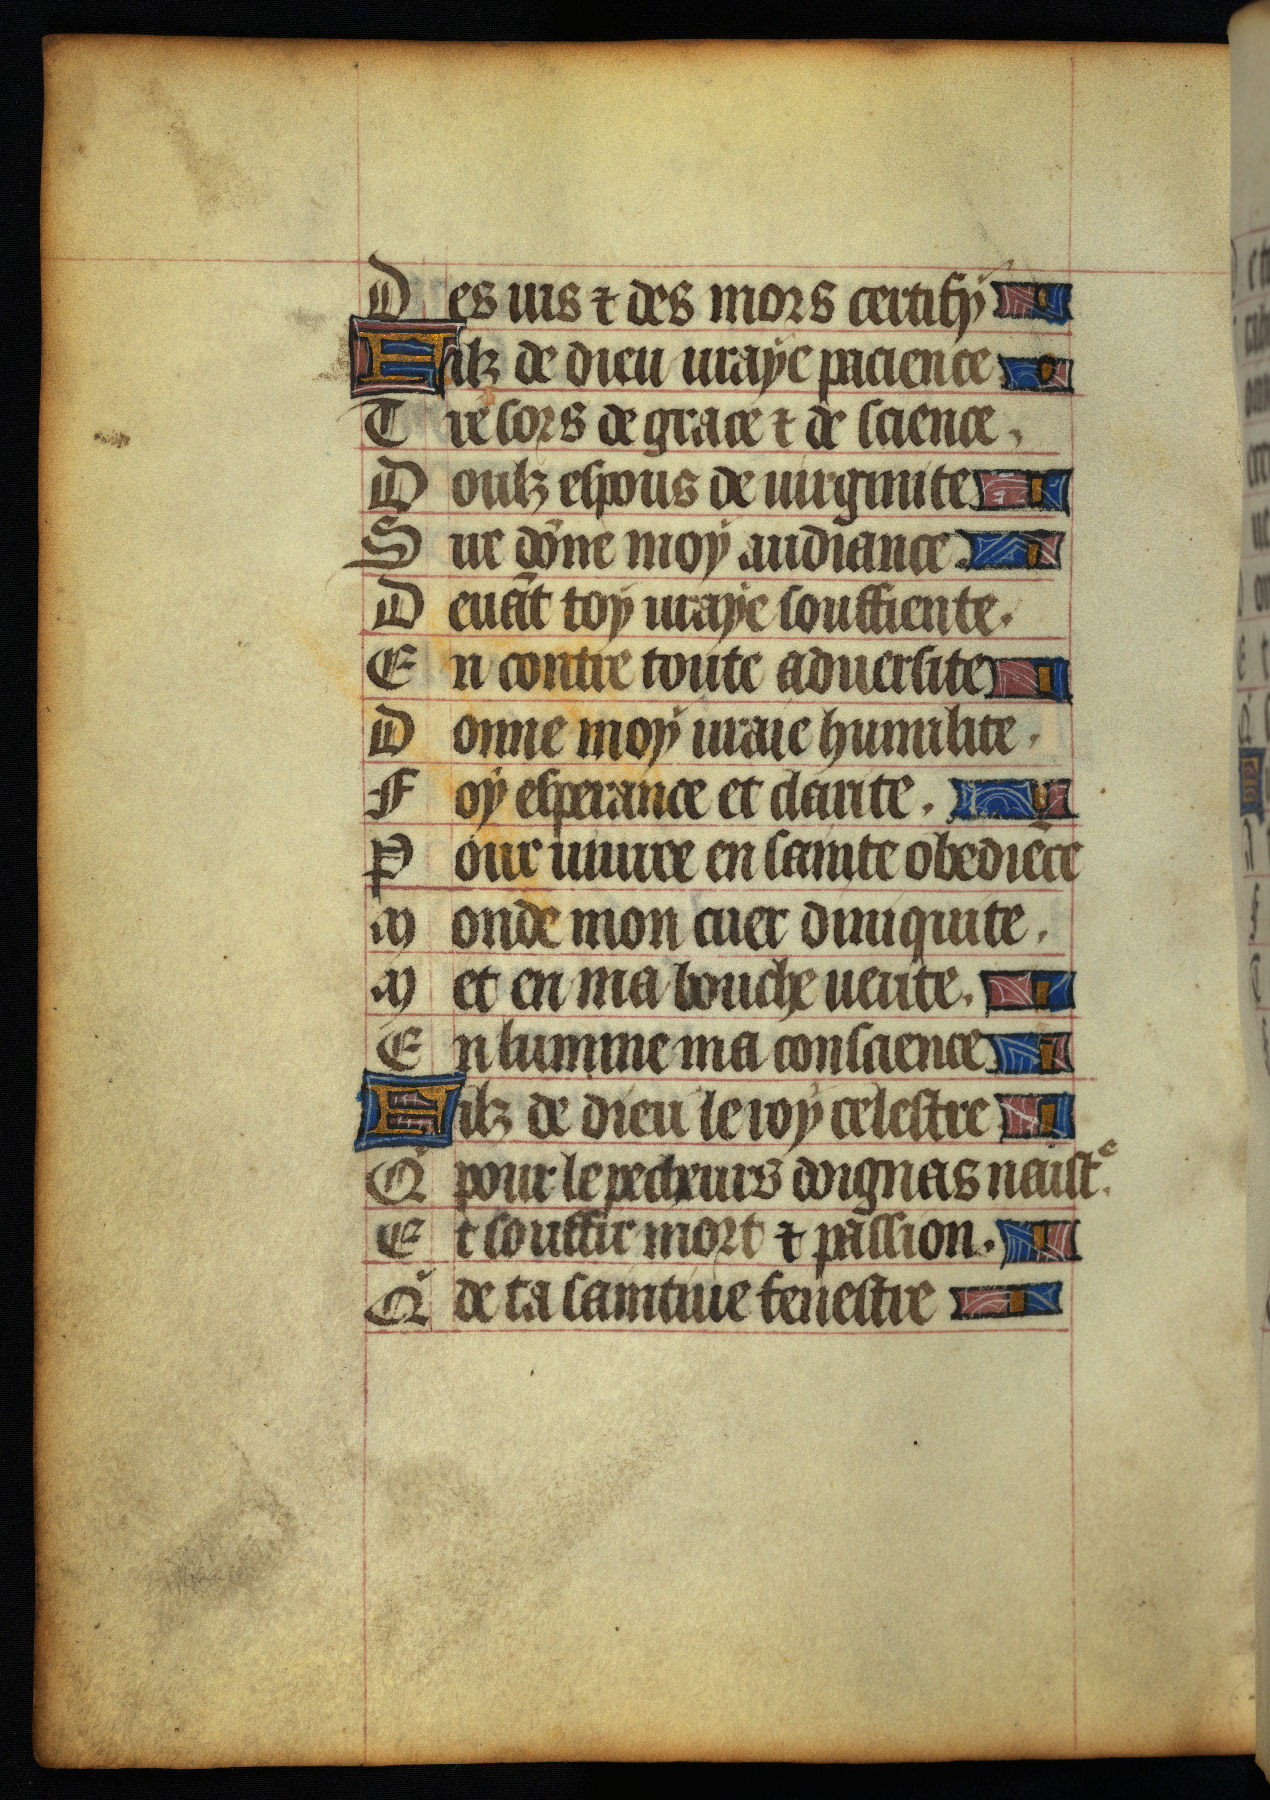 Des uis ⁊ des mors certifij
Filz de dieu uraÿe pacience
Tresors de grace ⁊ de science.
Doulz espous de uirginite
Sire dōne moÿ audiance
Deuāt toÿ uraÿe souffiente.
En contre toute aduersite
Donne moÿ uraie humilite.
Foÿ esperance et clarite.
Pour uiure en sainte obediēce
Monde mon cuer diniquite.
Met en ma bouche uerite.
En lumine ma conscience
Filz de dieu le roÿ celestre
Q̃ pour le pecheurs doignas naistᵉ.
Et souffir mort ⁊ passion.
Q̃ de ta saintiue fenestre